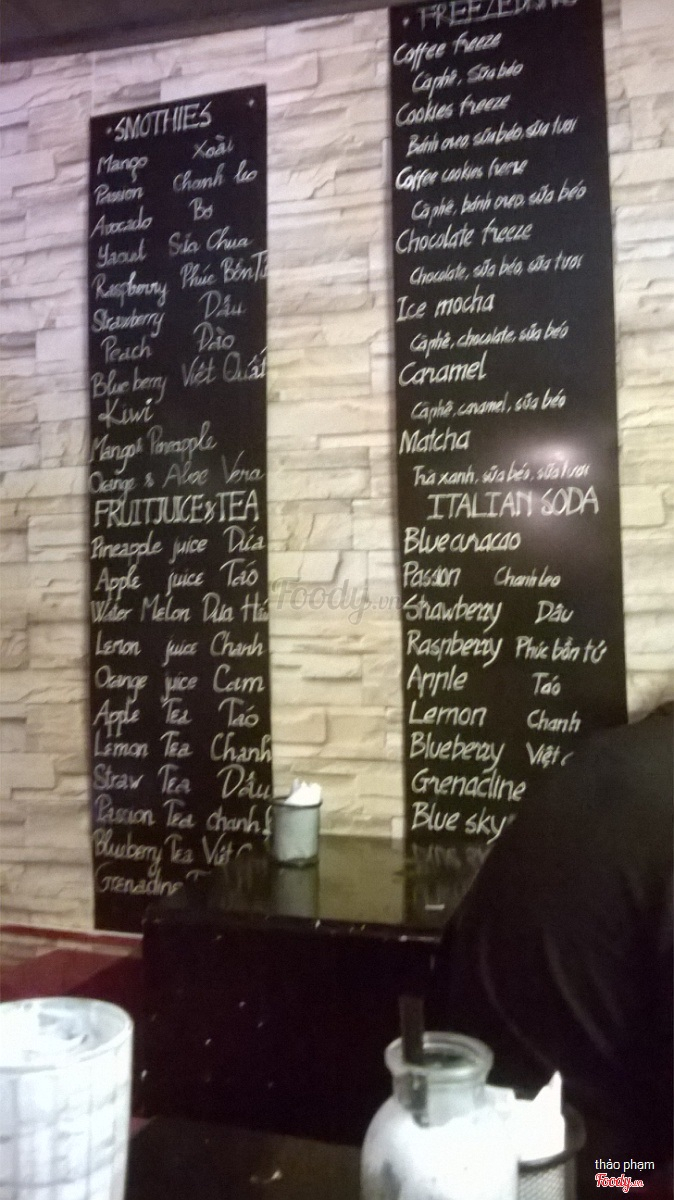 SMOTHIES
Mango Xoài
Passion Chanh leo
Avocado Bơ
Yaourt Sữa Chua
Raspberry Phúc Bồn Tử
Strawberry Dâu
Peach Đào
Blue berry Việt Quất
Kiwi
Mango & Pineapple
Orange & Aloe Vera
FRUIT JUICE & TEA
Pineapple juice Dứa
Apple juice Táo
Water Melon Dưa Hấ
Lemon juice Chanh
Orange juice Cam
Apple Tea Táo
Lemon Tea Chanh
Straw Tea Dâu
Passion Tea chanh l
Blueberry Tea Việt
Grenadine T
FREEZE
Coffee freeze
Cà phê, Sữa béo
Cookies freeze
Bánh oreo, sữa béo, sữa tươi
Coffee cookies freeze
Cà phê, bánh oreo, sữa béo
Chocolate freeze
Chocolate, sữa béo, sữa tươi
Ice mocha
Cà phê, chocolate, sữa béo
Caramel
Cà phê, caramel, sữa béo
Matcha
Trà xanh, sữa béo, sữa tươi
ITALIAN SODA
Blue curacao
Passion Chanh leo
Strawberry Dâu
Raspberry Phúc bồn tử
Apple Táo
Lemon Chanh
Blueberry Việt
Grenadine
Blue sky
Foody.vn
thảo phạm
Foody.vn